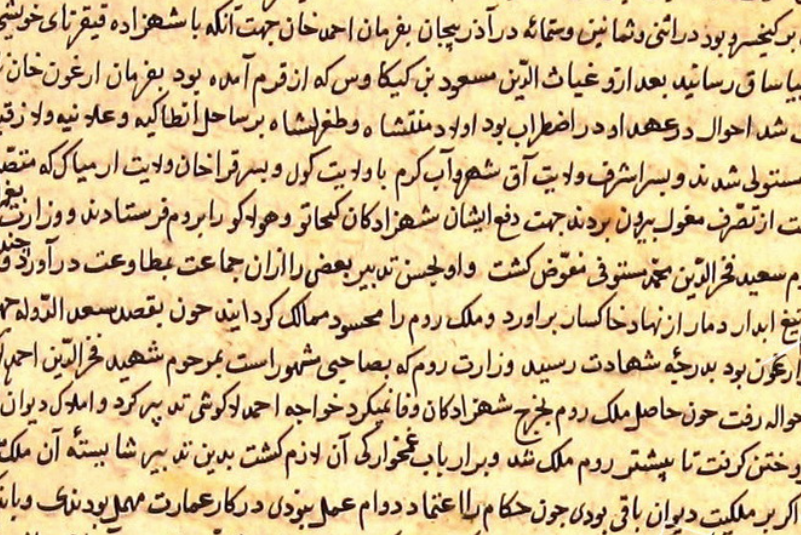 بر کیخسرو بود در اثنی و ثمانین و ستمائه در آذربیجان بفرمان احمد خان جهت آنکه با شهزاده قیقرتای خویشی
بیاساق رسانید بعد ازو غیاث الدّین مسعود بن کیکاوس که از قرم آمده بود بفرمان ارغون خان
شد احوال در عهد او در اضطراب بود اولاد منتشاه و طغرلشاه بر ساحل انطاکیه و علانیه و لاذقیه
مستولی شدند و بسر اشرف ولایت آق شهر و آب کرم با ولایت کول و بسر قراخان ولایت ارمیاک که
از تصّرف مغول بیرون بردند جهت دفع ایشان شهزادکان کنجاتو و هولاکو را بروم فرستادند و وزارت
سعید فخر الدّین محمّد مستوفی مفوّض کشت و او بحسن تدبیر بعضی را ازان جماعت بمطاوعت در آورد و
تیغ ابدار دمار از نهاد خاکسار براورد و ملک روم را محسود ممالک کردانید حون بقصد سعد الدّوله
ارغون بود بدرجه شهادت رسید وزارت روم که بصاحبی مشهور است بمرحوم شهید فخر الدّین احمد
حواله رفت حون حاصل ملک روم بخرج شهزادکان وفا نمیکرد خواجه احمد لاکوشی تدبیر کرد و املاک دیوان
فروختن کرفت تا بیشتر روم ملک شد و بر ارباب غمخوارکی آن لازم کشت بدین تدبیر شایستهٔ آن ملک
اکر بر ملکیت دیوان باقی بودی جون حکام را اعتماد دوام عمل نبودی در کار عمارت مهمل بودندی و